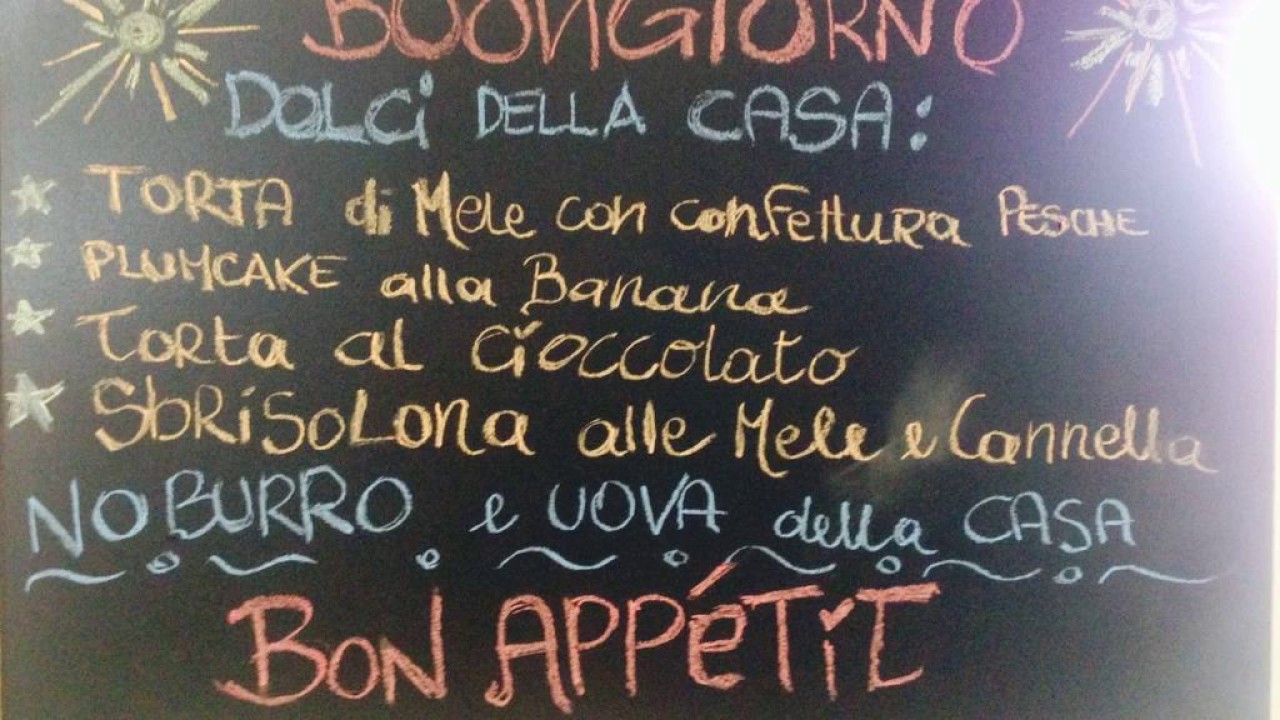 BUONGIORNO
DOLCi DELLA CASA:
TORTA di Mele con confettura PESCHE
PLUMCAKE alla Banana
Torta al cioccolato
SbRiSoLona alle Mele e Cannella
NO BURRO e UOVA della CASA
BON APPéTiT